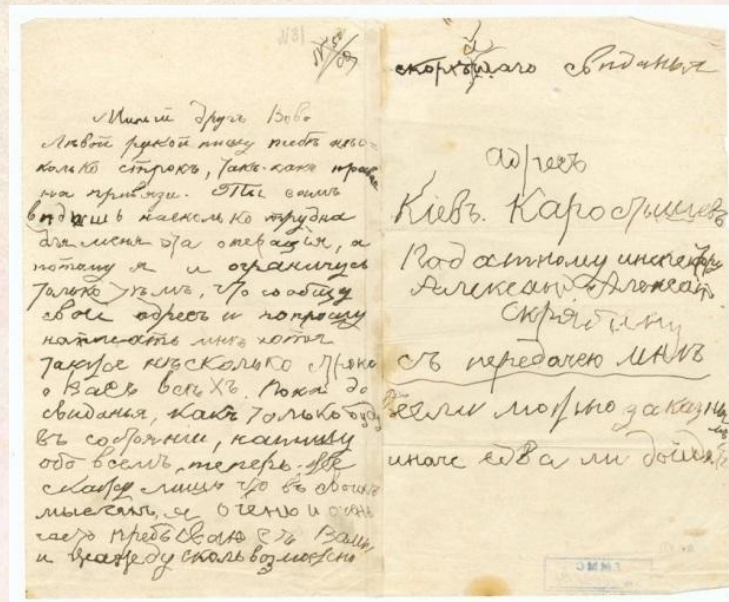 Милый другъ Вова
Лѣвой рукой пишу тебѣ нѣс-
колько строкъ, такъ какъ правая
на привязи. Ты самъ
видишь насколько трудна
для меня эта операція, а
потому я и ограничусь
только тѣмъ, что сообщу
свой адресъ и попрошу
написать мнѣ хотя
такое нѣсколько строкъ
о Васъ всѣхъ. Пока до
свиданья, какъ только буду
въ состояніи, напишу
обо всемъ, теперь
скажу лишь что въ своихъ
мысляхъ, я очень и очень
часто пребываю съ Вами
и жажду сколь возможно
скорѣйшаго свиданья
адресъ
Кіевъ. Каростышевъ
Податному инспектору
Александ. Александ.
Скрябину
съ передачею мнѣ
если можно заказнымъ
иначе едва ли дойдетъ
ГММС